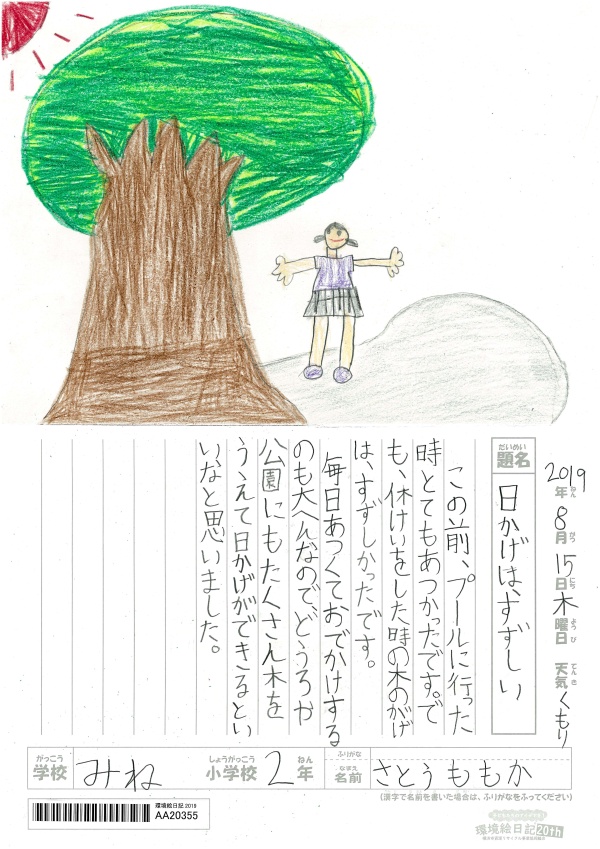 2019年8月15日木曜日 天気くもり
ねん がつ にち ようび てんき
だいめい
題名
日かげは、すずしい
この前、プールに行った
時とてもあつかったです。で
も、休けいをした時の木のかげ
は、すずしかったです。
毎日あつくておでかけする
のも大へんなので、どうろや
公園にもたくさん木を
うえて日かげができるとい
いなと思いました。
がっこう
学校
みね
しょうがっこう
小学校
2
ねん
年
ふりがな
なまえ
名前
さとうももか
(漢字で名前を書いた場合は、ふりがなをふってください)
環境絵日記 2019
AA20355
環境絵日記20th